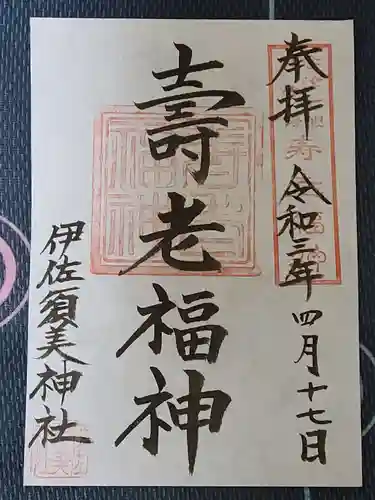 奉拝 令和三年四月十七日
壽老福神
伊佐須美神社